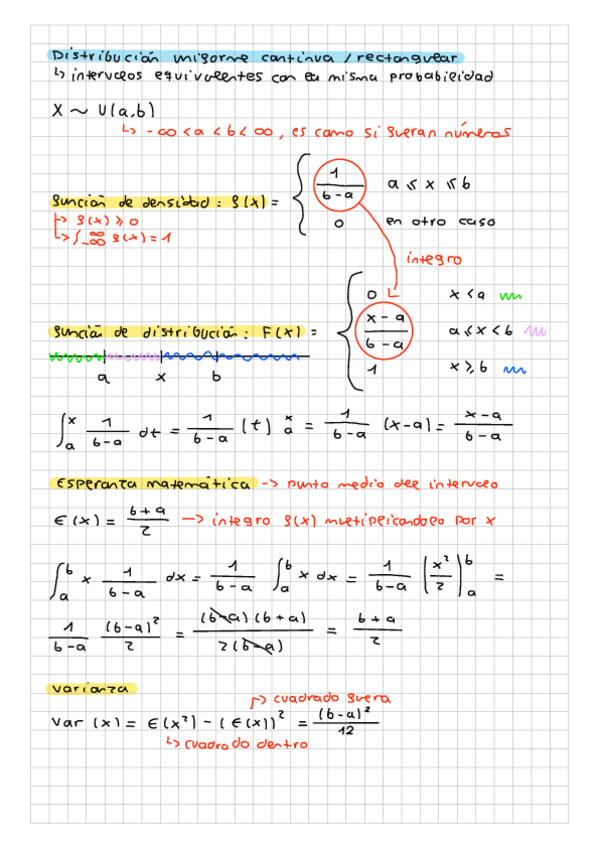 Distribución uniforme continua / rectangular
↳ intervalos equivalentes con la misma probabilidad
X ~ U(a,b)
↳ -∞ < a < b < ∞, es como si fueran números
función de densidad: f(x) = { 1/(b-a) a ≤ x ≤ b
0 en otro caso
↳ f(x) ≥ 0
↳ ∫_-∞^∞ f(x) = 1
integro
función de distribución: F(x) = { 0 x < a
(x-a)/(b-a) a ≤ x < b
1 x ≥ b
a x b
∫_a^x 1/(b-a) dt = 1/(b-a) (t)_a^x = 1/(b-a) (x-a) = (x-a)/(b-a)
Esperanza matemática -> punto medio del intervalo
E(x) = (b+a)/2 -> integro f(x) multiplicandolo por x
∫_a^b x 1/(b-a) dx = 1/(b-a) ∫_a^b x dx = 1/(b-a) (x²/2)_a^b =
1/(b-a) (b-a)²/2 = (b-a)(b+a)/2(b-a) = (b+a)/2
Varianza
↱ cuadrado fuera
Var (x) = E(x²) - (E(x))² = (b-a)²/12
↳ cuadrado dentro